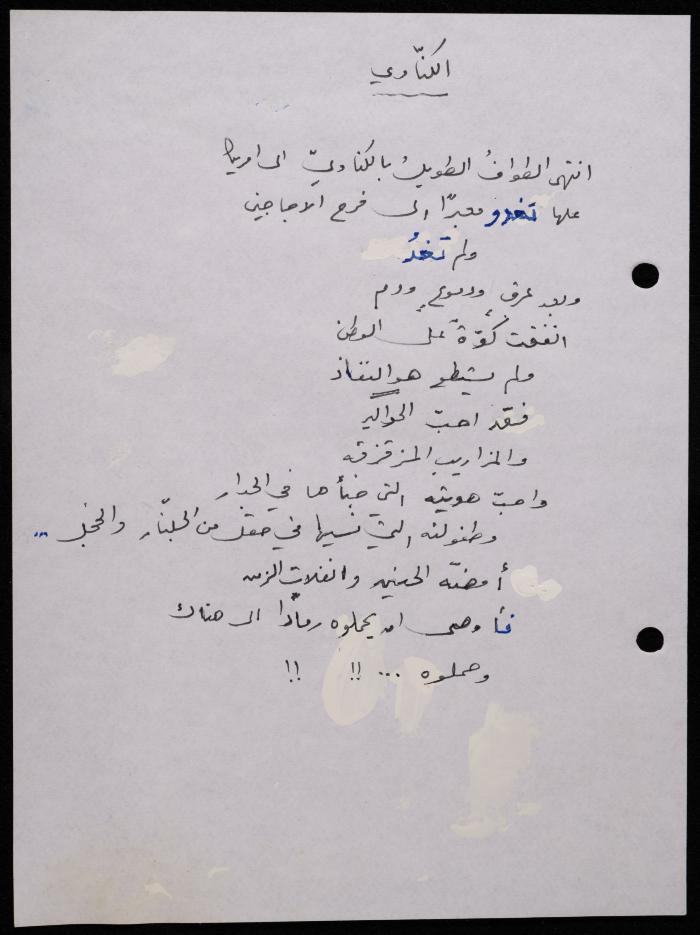 الكنّاوي
انتهى الطواف الطويل بالكناويّ الى امريكا
علها تغدو معبرًا الى فرح الاحاجين
ولم تغدُ
وبعد عرق ودموع ودم
انفتحت كوّة على الوطن
ولم يستطع هو النفاذ
فقد احبّ الحواكير
والمزاريب المزقزقه
واحبّ هويته التي خبأها في الجدار
وطفولته التي نسيها في حقل من الجلنّار والخجل ...
أمضّه الحنين وانفلات الزمن
فأوصى ان يحملوه رمادًا الى هناك
وحملوه ... !! !!